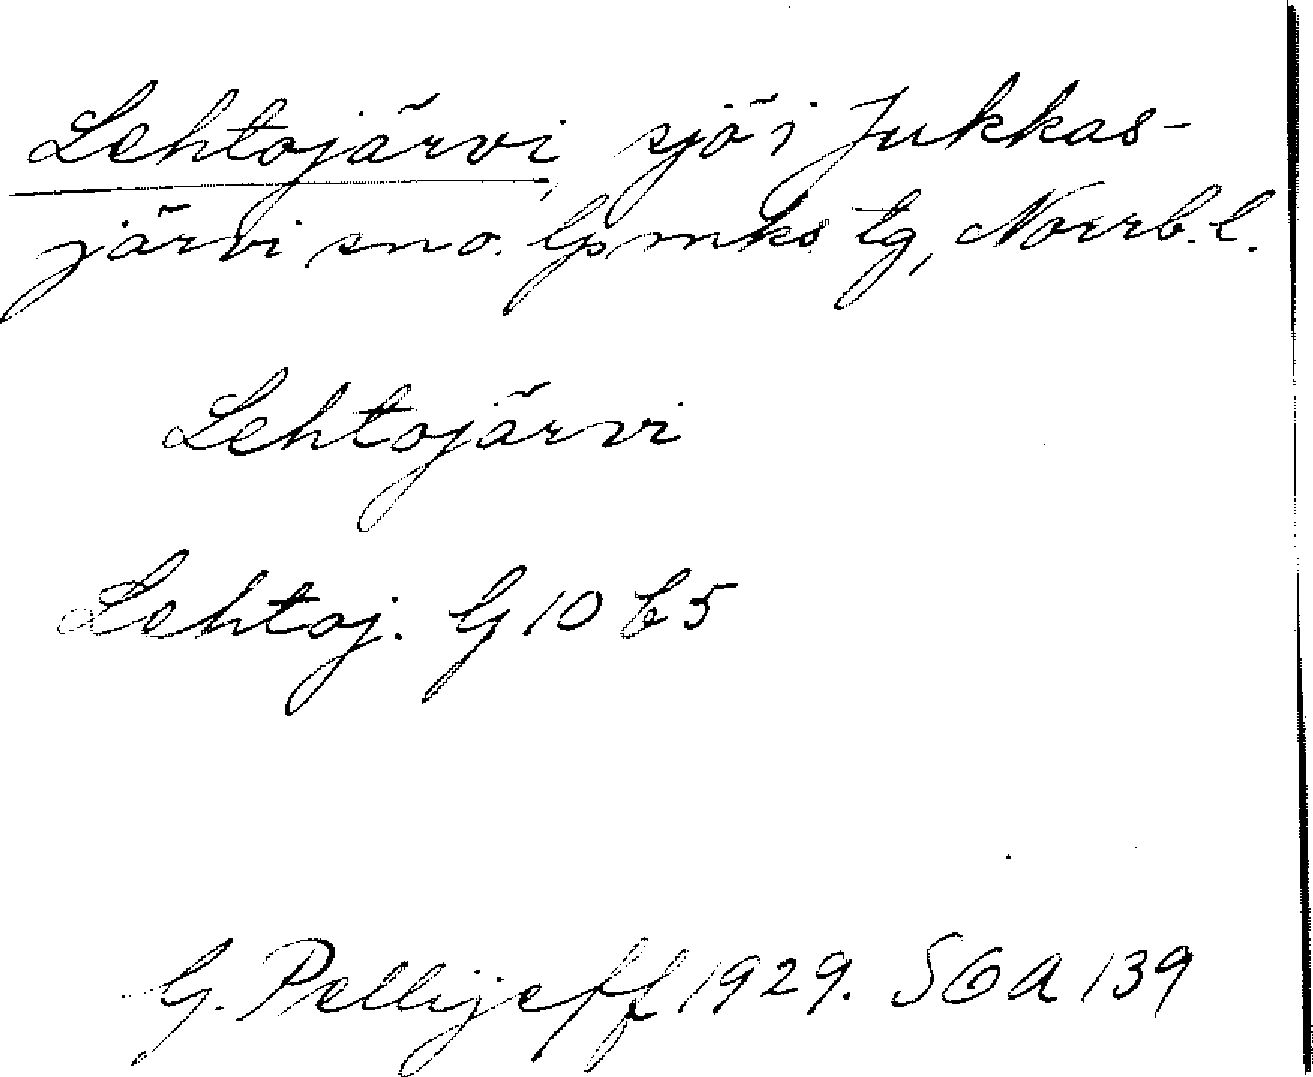 Lehtojärvi, sjö i Jukkas-
järvi sn o. Gpmks tg, Norrb. l.
Lehtojärvi
Lehtoj. G 10 C5
G. Pellijeff 1929. SOA 139